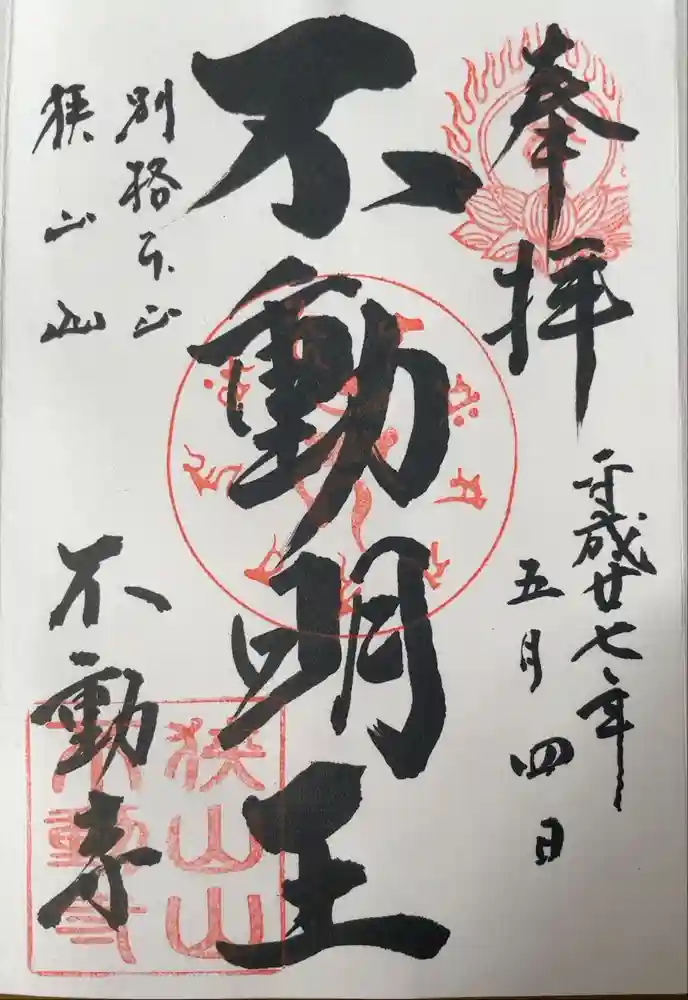 奉拝
平成廿七年
五月四日
不動明王
別格本山
狭山山
不動寺
狹山山
不動寺